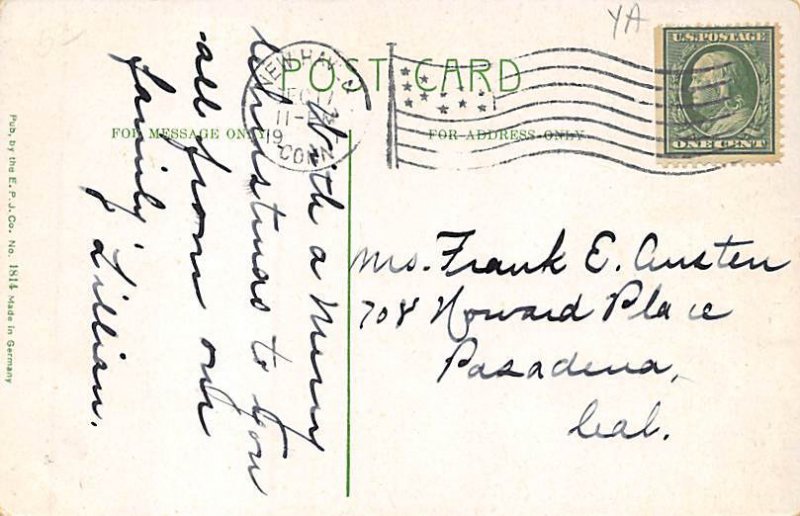 YA
POST CARD
U.S. POSTAGE
ONE CENT
NEW HAVEN
DEC 11
11-
19
CONN
FOR MESSAGE ONLY
FOR ADDRESS ONLY
With a Merry
Christmas to you
all from our
family.
Lillian.
Mrs. Frank E. Austen
708 Howard Place
Pasadena,
Cal.
Pub. by the E. P. J. Co. No. 1814 Made in Germany